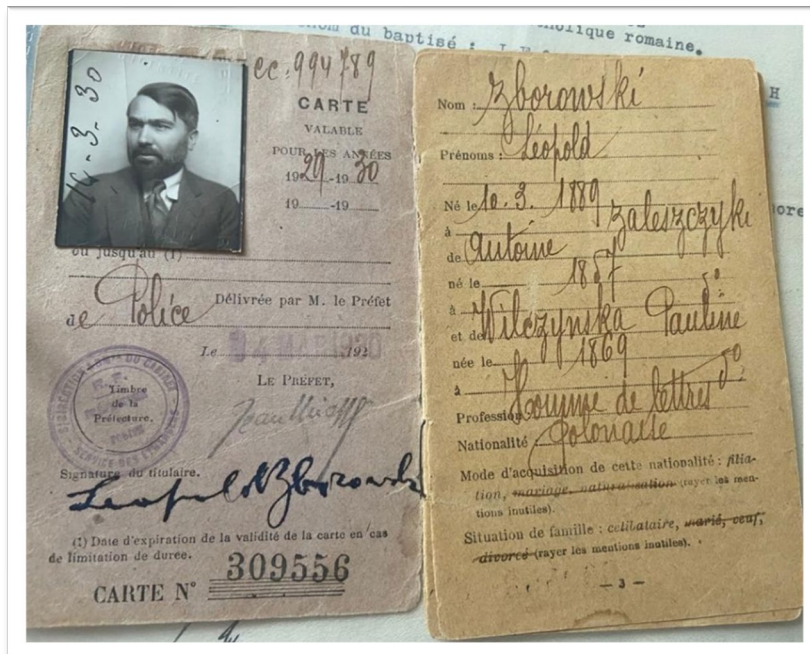 nom du baptisé :
catholique romaine.
H
cc. 994789
14-3-30
CARTE
VALABLE
POUR LES ANNÉES
1929-1930
19 -19
ou jusqu'au (1)
Délivrée par M. le Préfet
de Police
Le 192
LE PRÉFET,
Timbre
de la
Préfecture.
SERVICE DES ETRANGERS
Signature du titulaire.
Leopold Zborowski
(1) Date d'expiration de la validité de la carte en cas
de limitation de durée.
CARTE N° 309556
Nom : Zborowski
Prénoms : Léopold
Né le 10. 3. 1889
à Zaleszczyki
de Antoine
né le 1857
à
et de Wilczynska Pauline
née le 1869
à
Profession Homme de lettres
Nationalité Polonaise
Mode d'acquisition de cette nationalité : filia-
tion, mariage, naturalisation (rayer les men-
tions inutiles).
Situation de famille : célibataire, marié, veuf,
divorcé (rayer les mentions inutiles).
— 3 —